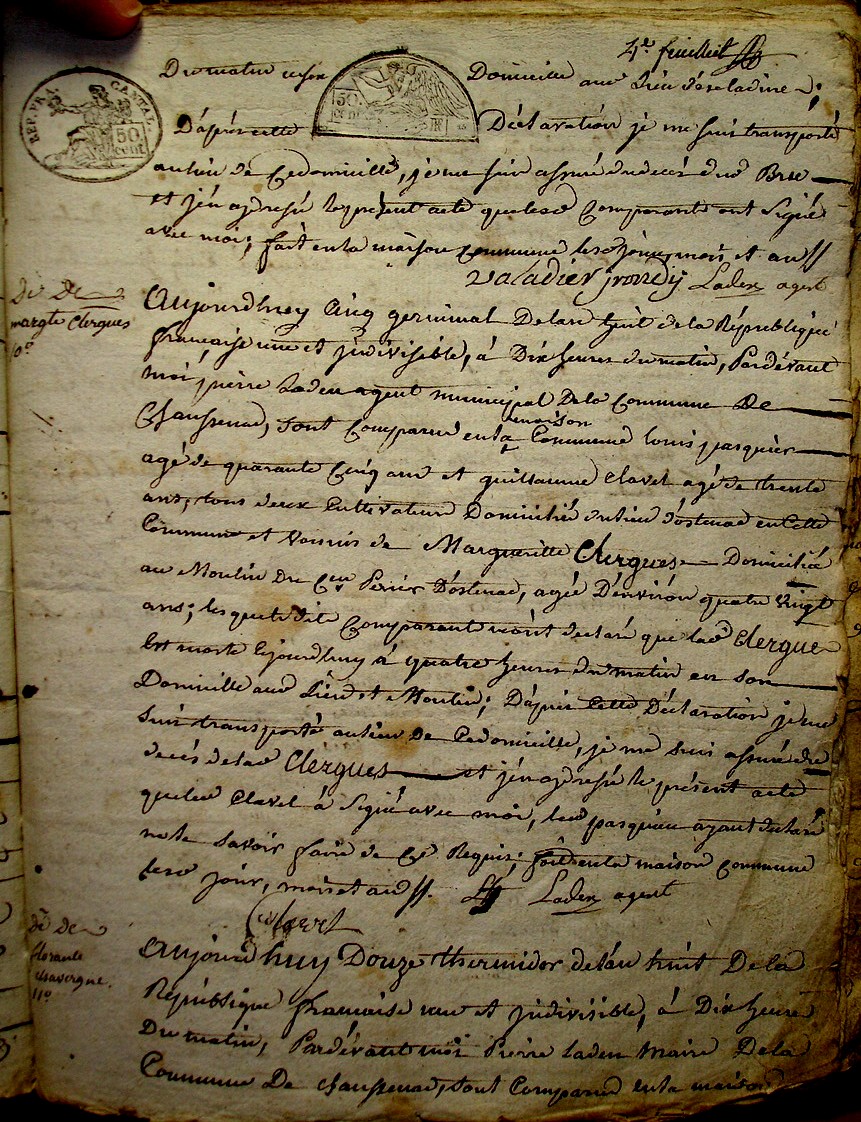 4e feuillet
REP. FRA. CANTAL.
50 cent
50.
Du matin en son Domicille aud Lieu
D'apres cette Déclaration je me suis transporté
au lieu de Ce domicille, je me suis assuré du decés dud Brue
et j'en ay dresé le présent acte que lesd Comparants ont Signé
avec moi; fait en la maison commune lesd jour, mois et an ff
valadier Laden agent
Dé De
margte Clergues
10e
aujourdhuy Cinq germinal Delan huit de la République
francaise une et jndivisible, à Dix heures du matin, Pardévant
moi pierre Laden agent municipal De la Commune De
Chaussenac, sont Comparus en la maison Commune louis pasquier
agé de quarante Cinq ans et guillaume Clavel agé de trente
ans, tous deux Cultivateurs Domiciliés du lieu d'ostenac en Cette
Commune et voisins de Margueritte Clergues Domiciliée
au Moulin du Cen Perier D'ostenac, agée D'environ quatre vingt
ans; lesquels dits Comparant m'ont declaré que lad Clergue
Est morte Cejourdhuy à quatre heures du matin en son
Domicille aud Lieu et Moulin; D'apres Cette Déclaration je me
suis transporté au lieu De Ce domicille, je me suis assuré du
decés de lad Clergues et j'en ay dresé le présent acte
que led Clavel à Signé avec moi, led pasquier ayant declaré
ne le savoir faire de Ce Requis; fait en la maison commune
lesd jour, mois et an ff. Laden agent
dé de
florante
chavergne.
11e
aujourdhuy Douze thermidor delan huit De la
République francaise une et jndivisible, à Dix heures
Du matin, Pardévant moi Pierre laden Maire De la
Commune De Chaussenac, sont Comparus en la maison